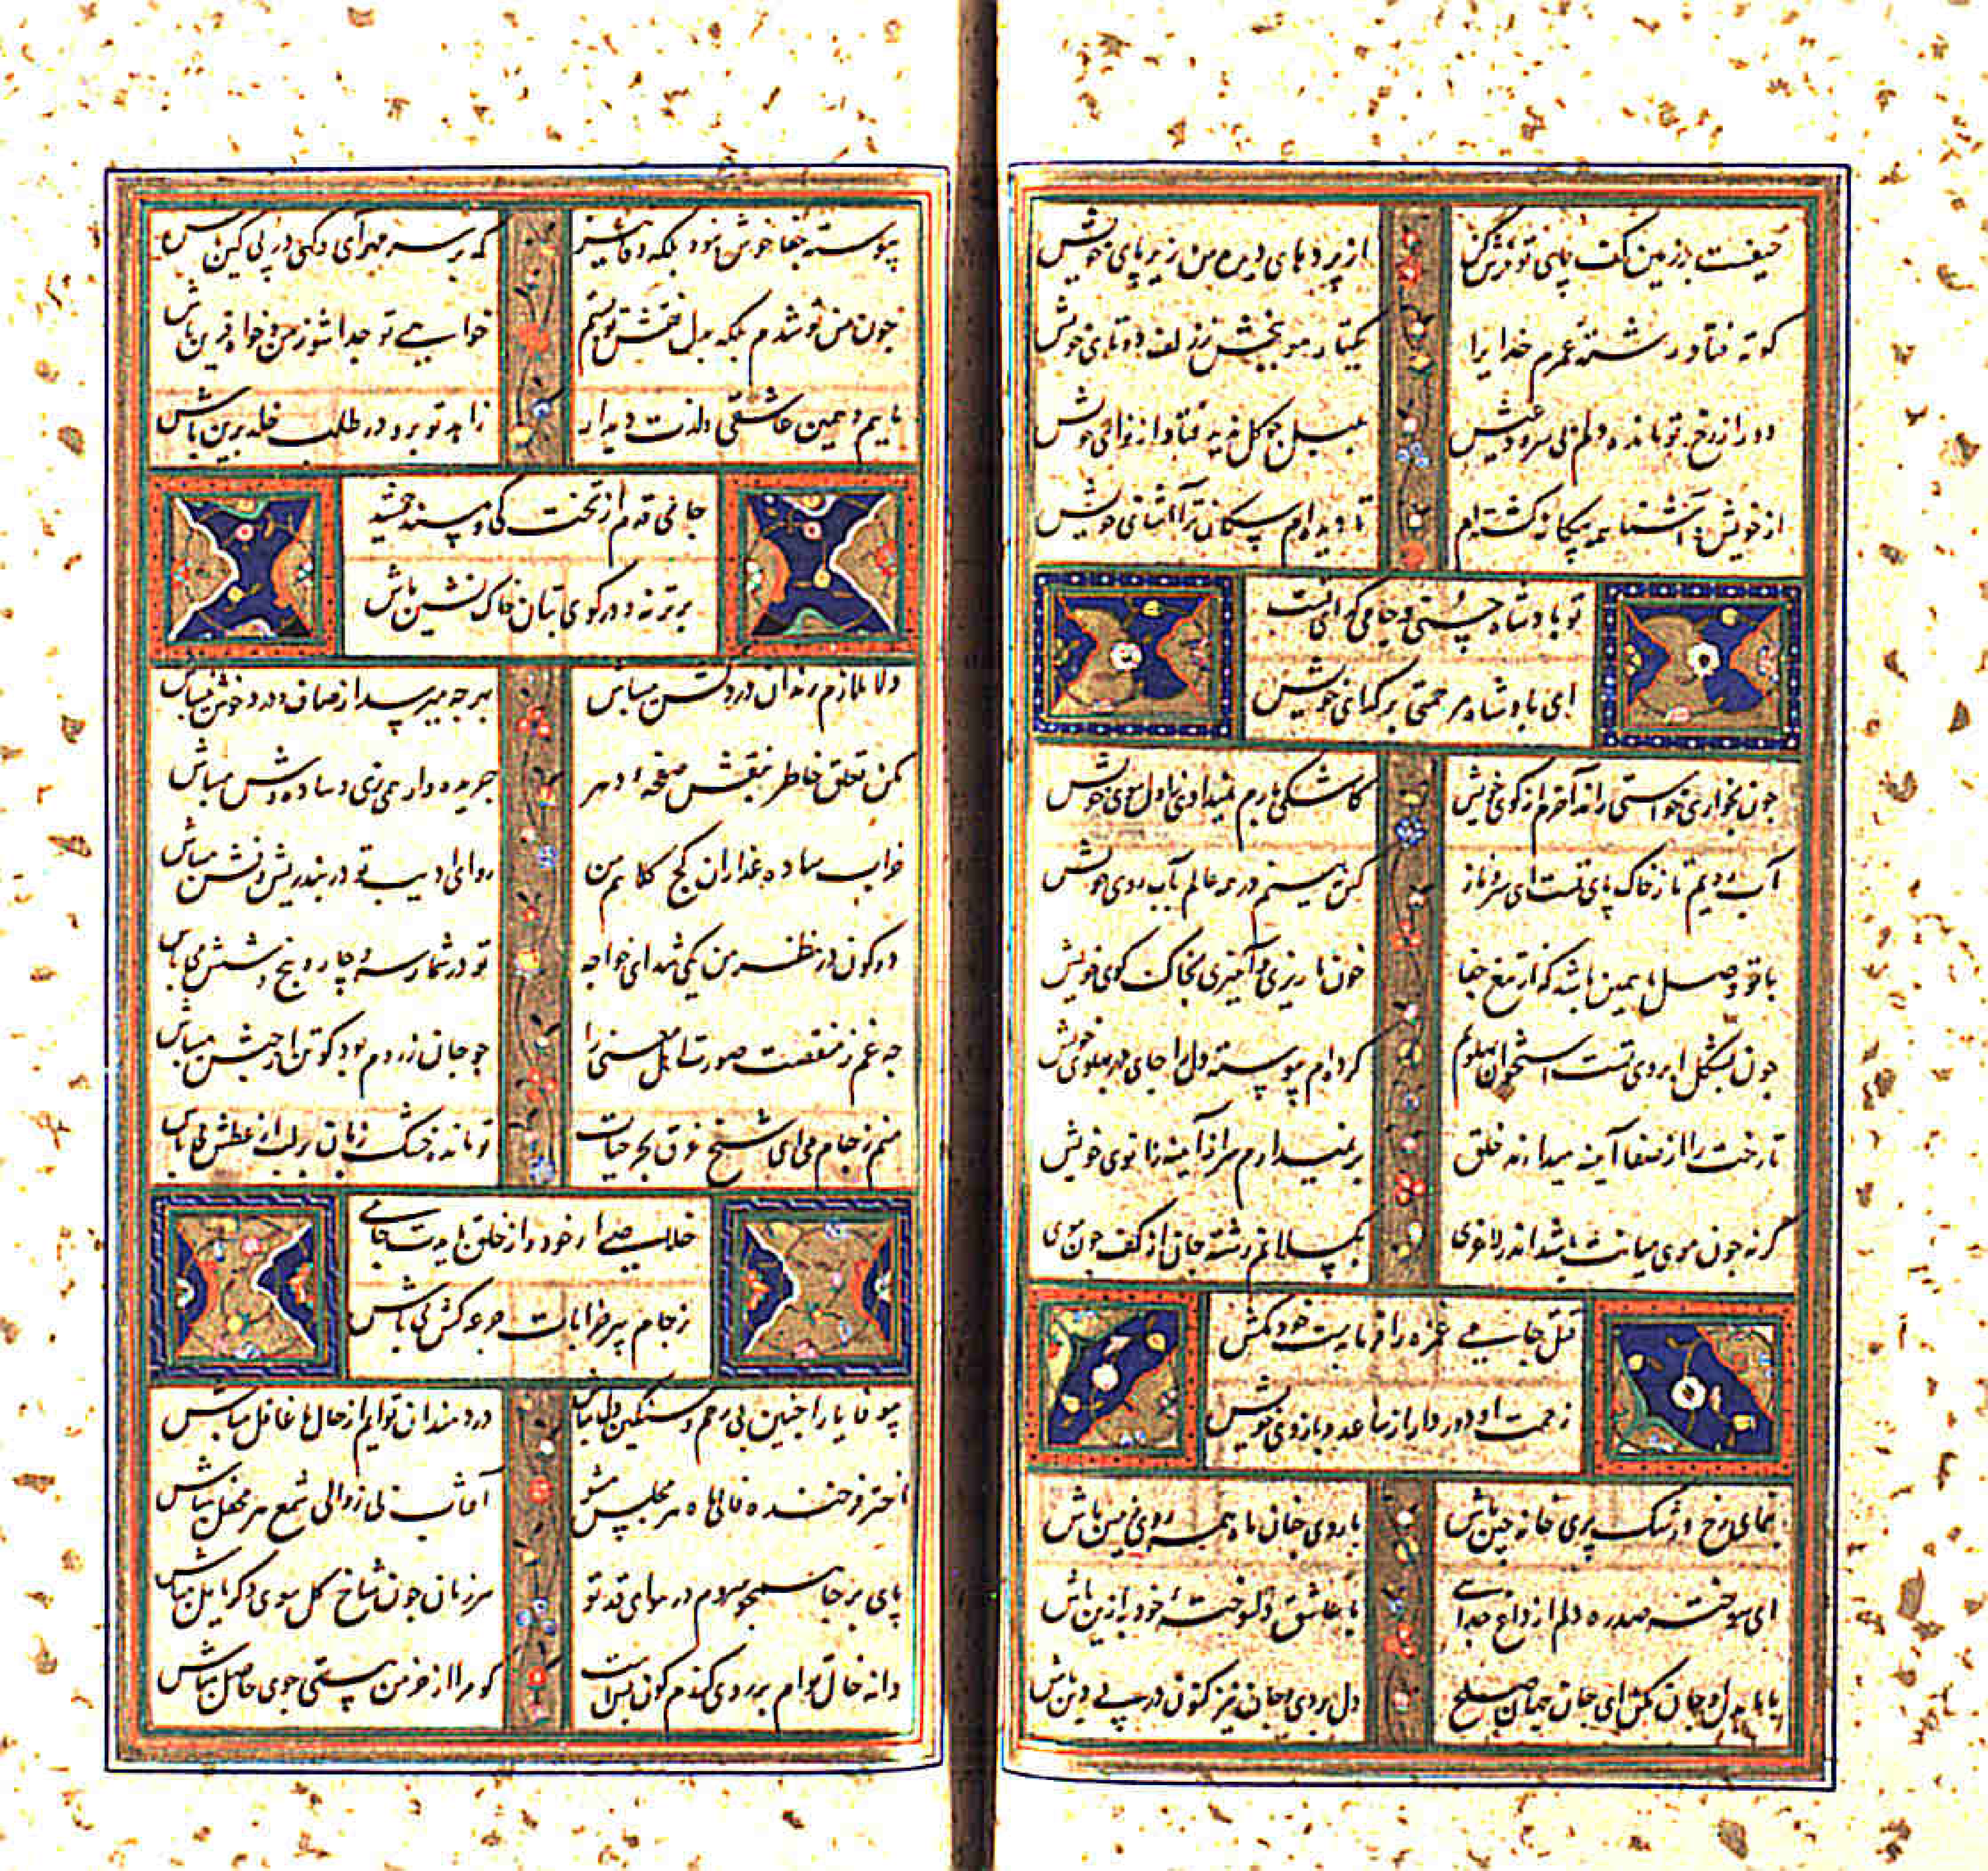 حیفست بر زمین کف پای تو فرش کن
از پرده‌های دیده من زیر پای خویش
کوته فتاد رشتهٔ عمرم خدا را
یکتار مو ببخش ز زلف دوتای خویش
دور از رخ تو مانده دلم بی سرود عیش
بلبل چو گل ندید فتاد از نوای خویش
از خویش و آشنا همه بیگانه گشته‌ام
تا دیده‌ام سگان ترا آشنای خویش
تو پادشاه حسنی و جامی گدای تست
ای پادشاه مرحمتی بر گدای خویش
چون بخواری خواستی راند آخرم از کوی خویش
کاشکی بارم نمیدادی ز اول سوی خویش
آب رویم تا ز خاک پای تست ای سرو ناز
کس نبینم در همه عالم بآب روی خویش
با تو وصل ما همین باشد که از تیغ جفا
خون ما ریزی و آمیزی بخاک کوی خویش
چون بشکل ابروی تست استخوان پهلوم
کرده‌ام پیوسته دل را جای در پهلوی خویش
تا رخت را از صفا آیینه میدانند خلق
بر نمیدارم سر از آیینه زانوی خویش
گر نه چون موی میانت باشد اندر لاغری
بگسلانم رشته جان از کف چون موی
قتل جامی غمزه را فرما بدست خود مکش
زحمت او دور دار از ساعد و بازوی خویش
بنمای رخ و رشک پری خانه چین باش
با روی چنان ماه همه روی زمین باش
ای سوخته صد ره دلم از داغ جدایی
با عاشق دلسوخته خود به ازین باش
یا با بیدل و جان کش ای جان جهان صلح
دل بردی و جان نیز کنون در پی دین باش
پیوسته جفا خوش نبود بلکه وفا نیز
که بر سر مهر آی و گهی در پی کین باش
چون من تو شدم بلکه بدل نقش تو بستم
خواهی تو جدا شو ز من و خواه قرین باش
ماییم و همین عاشقی و لذت دیدار
زاهد تو برو در طلب خلد برین باش
جامی قدم از تخت کی و مسند جمشید
برتر نه و در کوی بتان خاک نشین باش
دلا ملازم رندان دردکش میباش
بهر چه میرسد از صاف و درد خوش میباش
مکن تعلق خاطر بنقش صفحهٔ دهر
جریده‌وار همی زی و ساده وش میباش
خراب ساده عذاران کج کلاهم من
رو ای ادیب تو در بند ریش و فش میباش
دو کون در نظر من یکی شد ای خواجه
تو در شمار سه و چار و پنج و شش می باش
چه غم ز منقصت صورت اهل معنی را
چو جان ز روم بود گو تن از حبش میباش
منم ز جام می ای شیخ غرق بحر حیات
تو مانده خشک زبان بر لب از عطش می باش
خلاصی ار خود و از خلق بایدت جامی
ز جام پیر خرابات جرعه کش می باش
بیوفا یارا چنین بی رحم و سنگین دل مباش
دردمندان توایم از حال ما غافل مباش
اختر فرخنده فالی ماه هر مجلس مشو
آفتاب بی زوالی شمع هر محفل مباش
پای بر جا همچو سروم در هوای قد تو
هر زمان چون شاخ گل سوی دگر مایل مباش
دانه خال توام بر روی گندم گون بس است
گو مرا از خرمن هستی جوی حاصل مباش